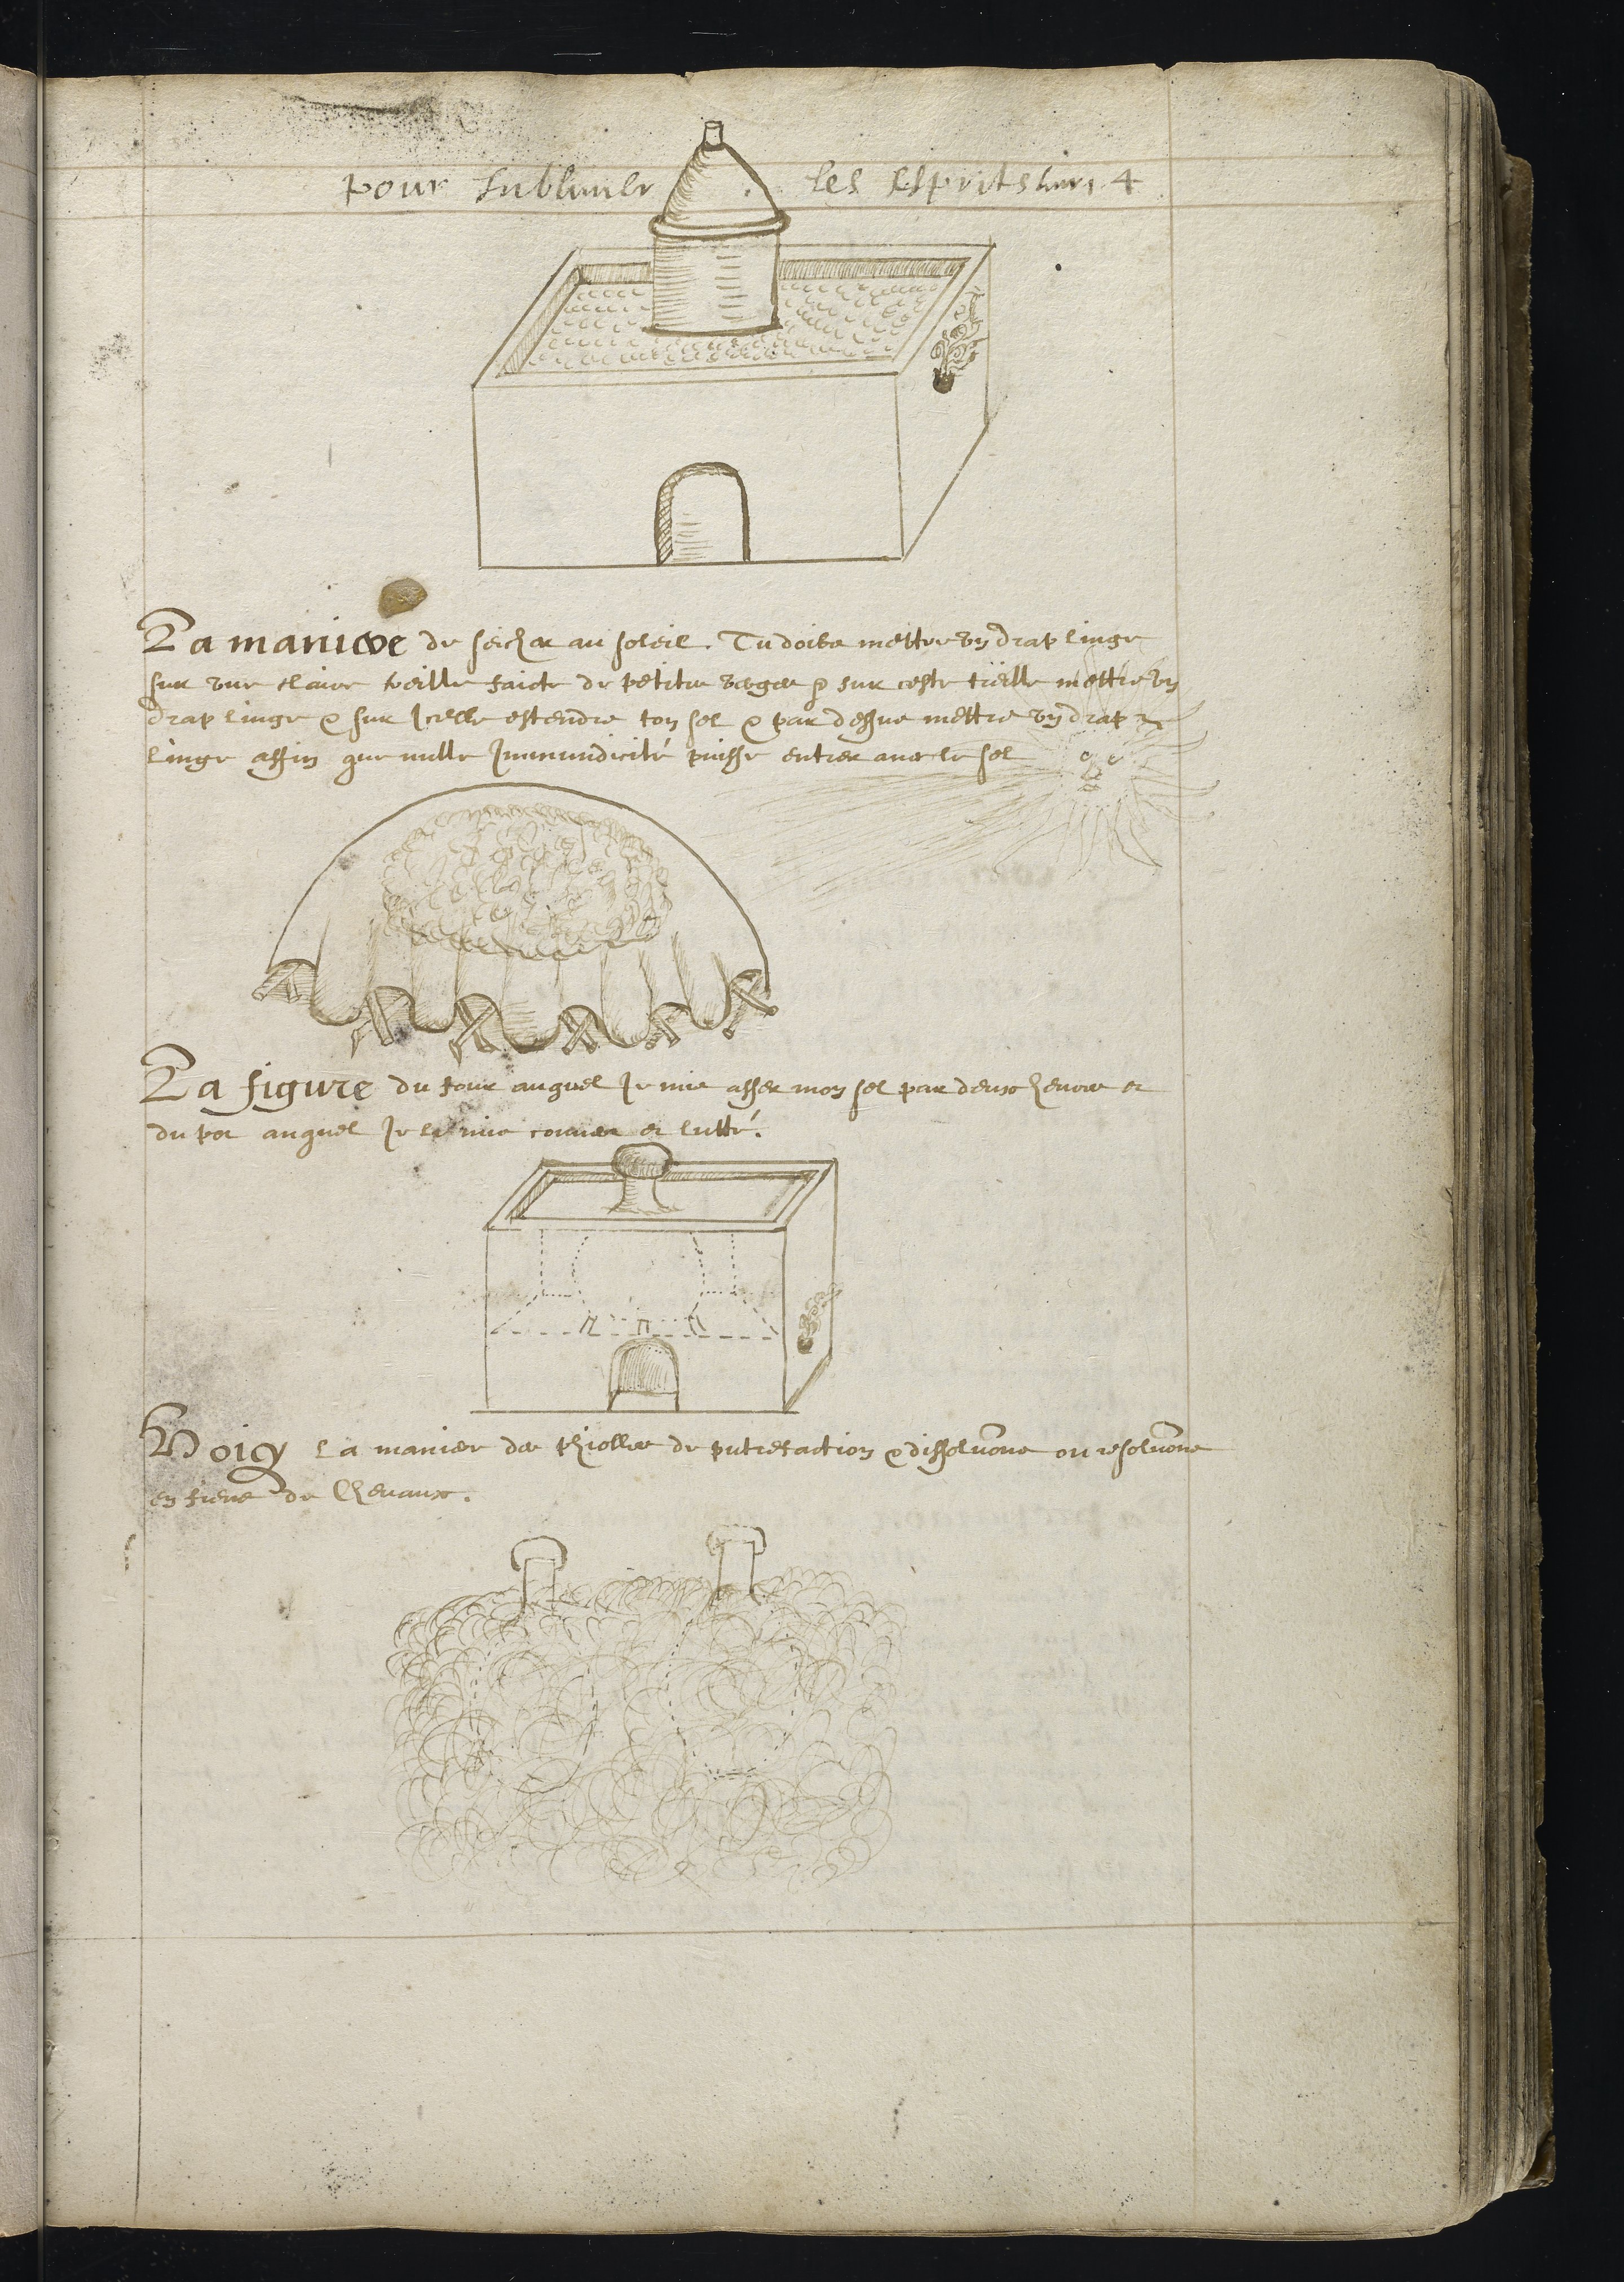 pour sublimer les Esprits 4
La maniere de seicher au soleil. Tu doibs mettre vn drap linge
sur vne claire faicte de petites verges & sur ceste mettre vn
drap linge & sur Icelle estendre ton sel & par dessus mettre vn drap
linge affin que nulle Immundicité puisse entrer auec le sel
La figure du four auquel Je mis asser mon sel par deux heures et
du pot auquel Je le mis couuer et lutté.
Voicy la manier des phiolles de putrefaction & dissolutions ou resolutions
en fiens de Cheuaux.